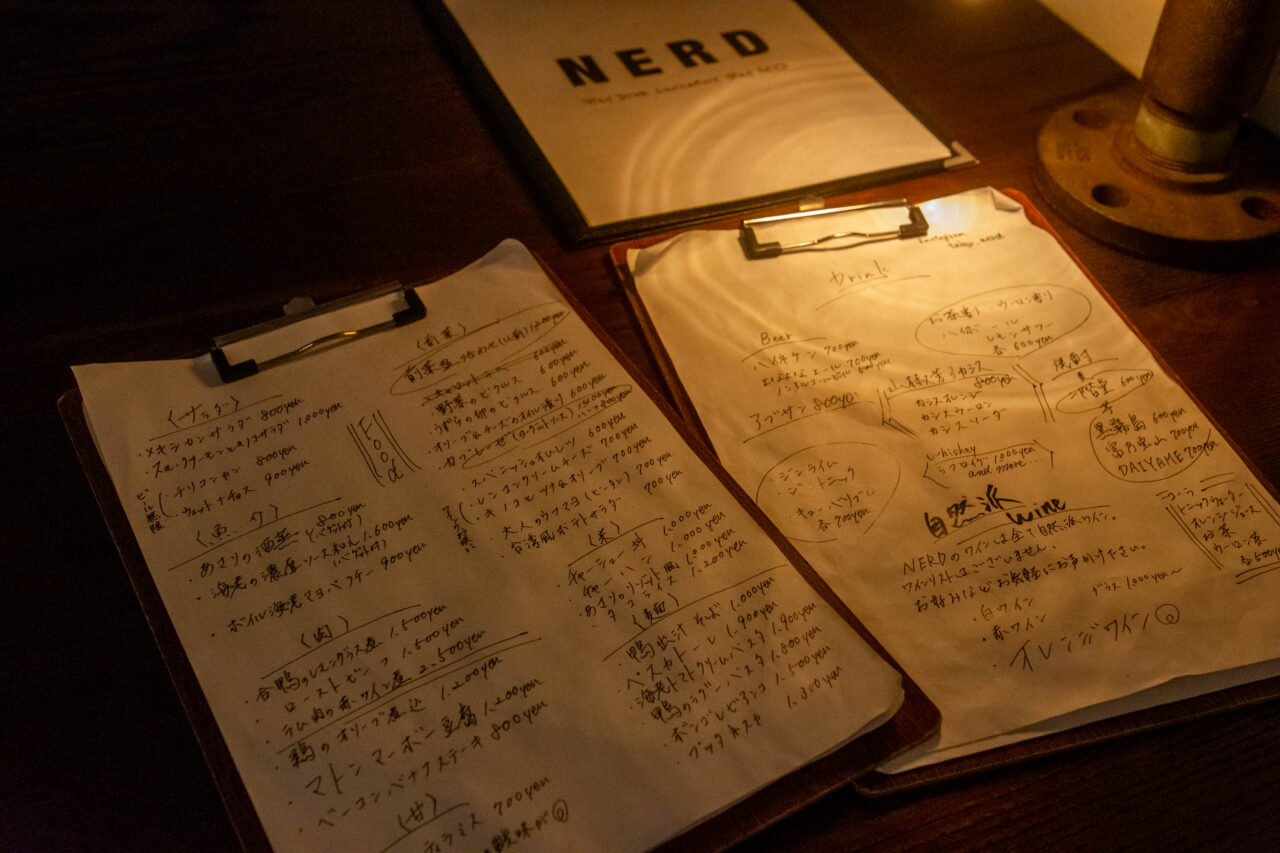 NERD
Food
〈サラダ〉
・メキシカンサラダ 800yen
・スモークサーモンとイクラサラダ 1.000yen
・チリコンカン 800yen
・ウェットナチョス 900yen
〈魚介〉
・あさりの酒蒸し 800yen
・海老の濃厚ソース和え 1.600yen
・ボイル海老マヨパクチー 900yen
〈肉〉
・合鴨のレモングラス煮 1.500yen
・ローストビーフ 1.500yen
・ラム肉の赤ワイン煮 2.500yen
・鶏のオリーブ煮込 1.200yen
・マトンマーボー豆腐 1.200yen
・ベーコンバナナステーキ 800yen
〈甘〉
ティラミス 700yen
酸味が
〈前菜〉
前菜盛り合わせ 1200yen
600yen
野菜のピクルス 600yen
うずらの卵のピクルス 600yen
オリーブ&チーズのオイル漬け 600yen
ハーフ 800yen
・スパニッシュオムレツ 600yen
・レンコンクリームチーズ 700yen
・キノコとツナ&オリーブ 700yen
・大人のウフマヨ(ピータン) 700yen
・台湾風ポテトサラダ 700yen
〈米〉
・チャーシュー丼 1.000yen
・チャーハン 1.000yen
・あさりリゾット風 1.000yen
・タコライス 1.200yen
〈麺〉
・鴨出汁そば 1.000yen
・ペスカトーレ 1.900yen
・海老トマトクリームパスタ 1.900yen
・鴨のラグーパスタ 1.800yen
・ボンゴレビアンコ 1.500yen
・プッタネスカ 1.300yen
Instagram
Drink
Beer
ハイネケン 700yen
よなよなエール 700yen
ノンアルコールビール 600yen
アブサン 800yen
ジンライム
ジントニック
キューバリブレ
各700yen
お茶割り ウーロン割り
ハイボール
レモンサワー
各600yen
800yen
カシスオレンジ
カシスウーロン
カシスソーダ
Whiskey
ラフロイグ 1.000yen
and more...
焼酎
麦
二階堂 600yen
芋
黒霧島 600yen
富乃宝山 700yen
DAIYAME 700yen
コーラ
トニックウォーター
オレンジジュース
お茶
ウーロン茶
各500yen
自然派 wine
NERDのワインは全て自然派ワイン。
ワインリストはございません。
お好みなどお気軽にお声かけ下さい。
・白ワイン グラス 1.000yen〜
・赤ワイン
・オレンジワイン